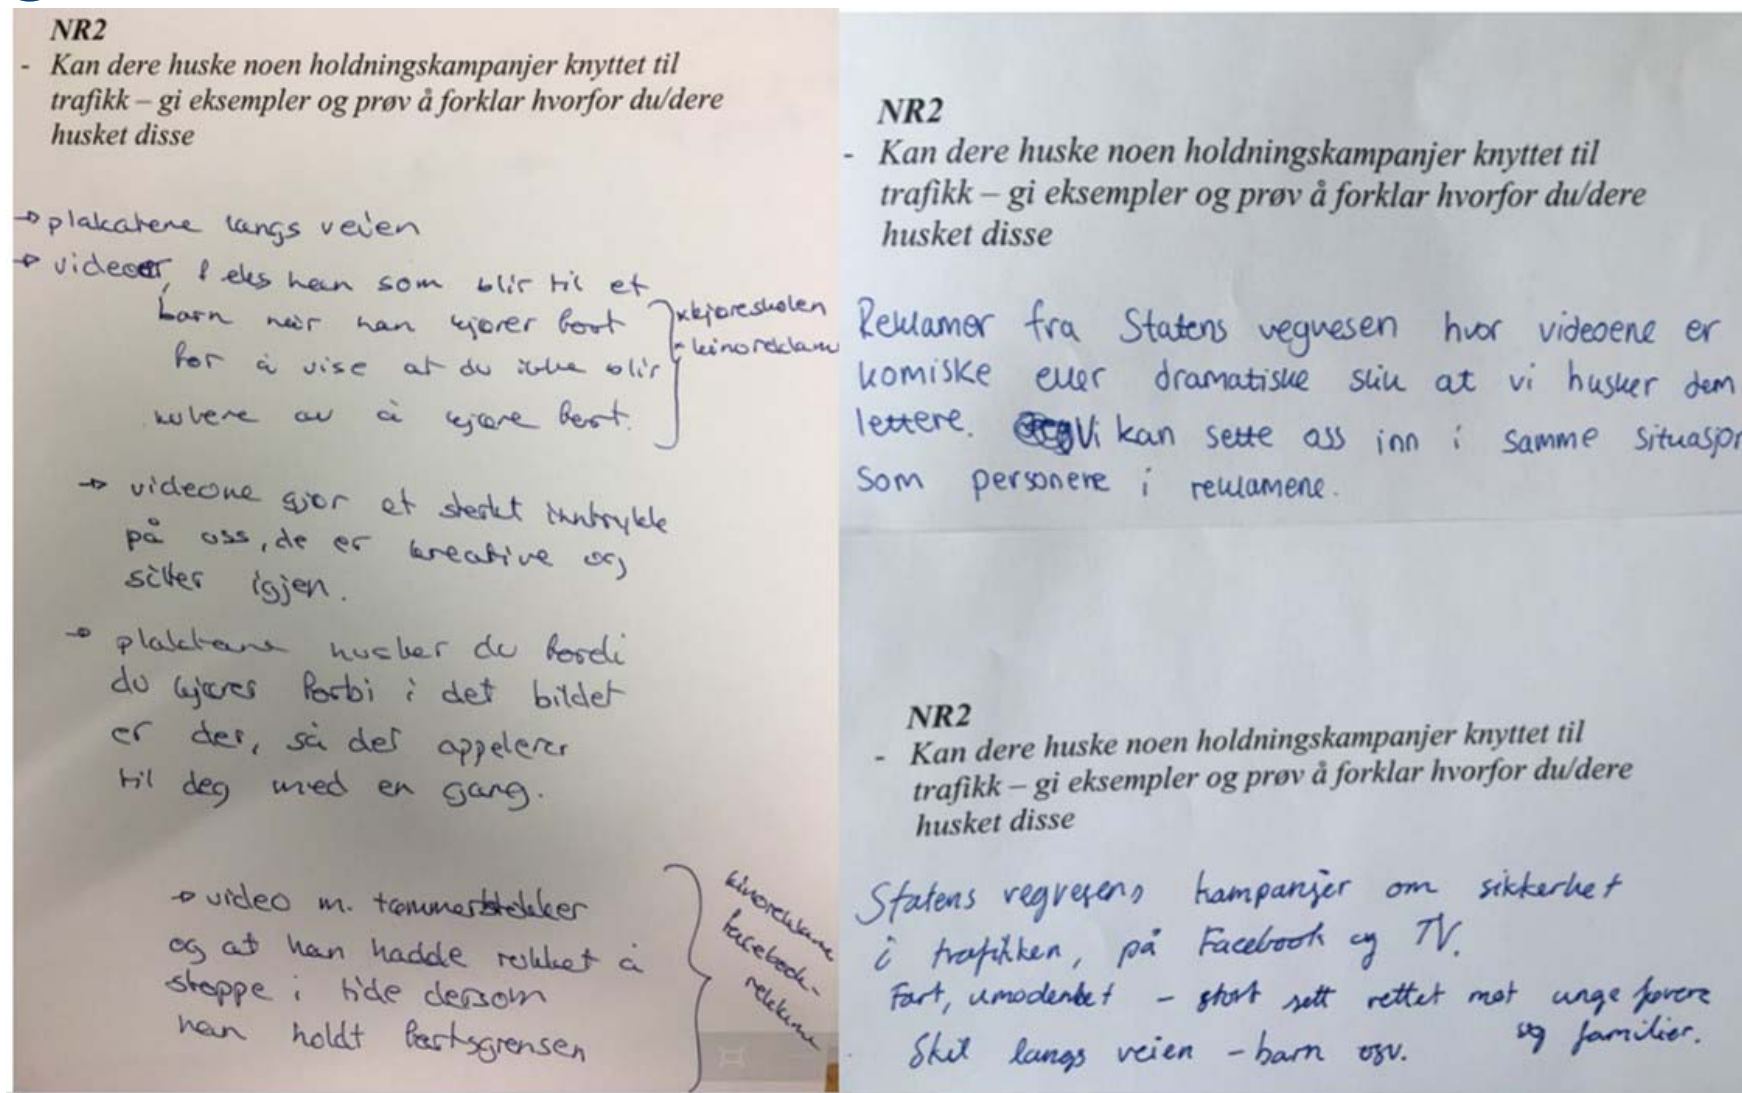 NR2
- Kan dere huske noen holdningskampanjer knyttet til
trafikk – gi eksempler og prøv å forklar hvorfor du/dere
husket disse
→ plakatene langs veien
→ videoer, f eks han som blir til et
barn når han kjører fort
for å vise at du ikke blir
kulere av å kjøre fort.
kjøreskolen
- kinoreklame
→ videone gjør et sterkt inntrykk
på oss, de er kreative og
sitter igjen.
→ plaktene husker du fordi
du kjøres forbi i det bildet
er der, så det appelerer
til deg med en gang.
→ video m. tømmerstokker
og at han hadde rukket å
stoppe i tide dersom
han holdt fartsgrensen
kinoreklame
facebook-
reklame
NR2
- Kan dere huske noen holdningskampanjer knyttet til
trafikk – gi eksempler og prøv å forklar hvorfor du/dere
husket disse
Reklamer fra Statens vegvesen hvor videoene er
komiske eller dramatiske slik at vi husker dem
lettere. Vi kan sette oss inn i samme situasjon
som personene i reklamene.
NR2
- Kan dere huske noen holdningskampanjer knyttet til
trafikk – gi eksempler og prøv å forklar hvorfor du/dere
husket disse
Statens vegvesens kampanjer om sikkerhet
i trafikken, på Facebook og TV.
Fart, umodenhet - stort sett rettet mot unge førere
og familier.
Skilt langs veien - barn osv.